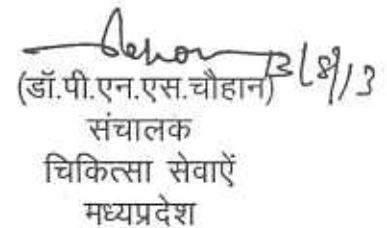 13/8/13
(डॉ.पी.एन.एस.चौहान)
संचालक
चिकित्सा सेवाऐं
मध्यप्रदेश